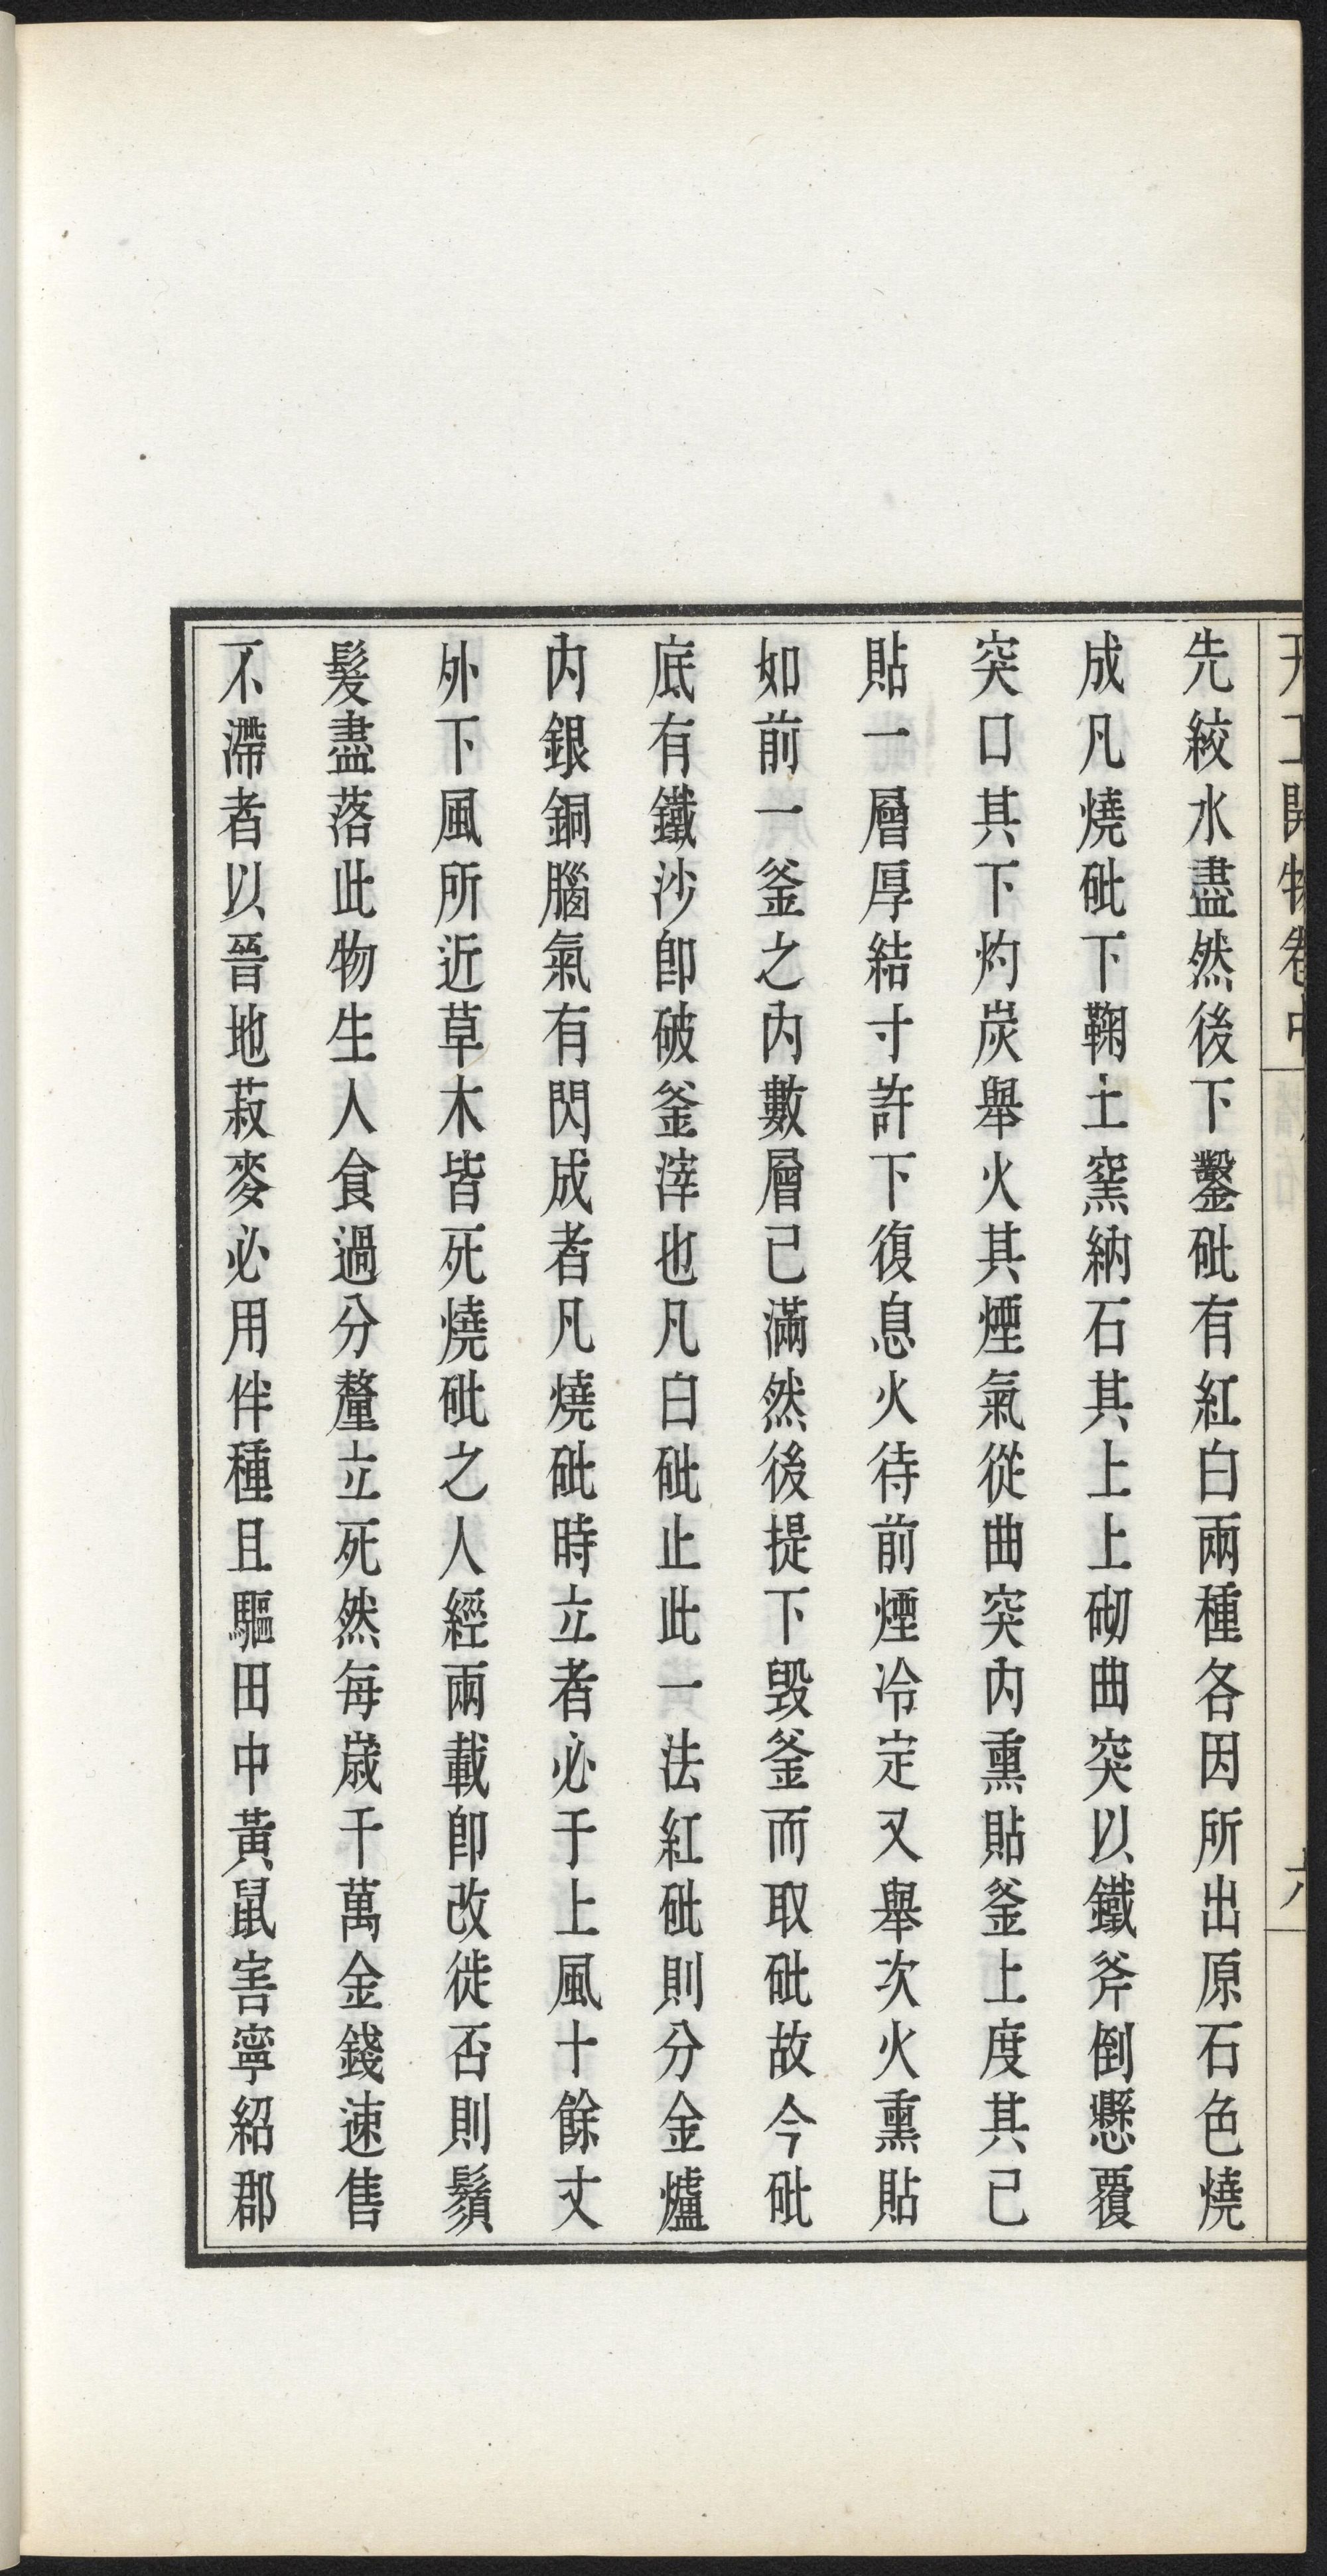 天工開物卷中
六
先絞水盡然後下鑿砒有紅白兩種各因所出原石色燒
成凡燒砒下鞠土窯納石其上上砌曲突以鐵斧倒懸覆
突口其下灼炭舉火其煙氣從曲突內熏貼釜上度其已
貼一層厚結寸許下復息火待前煙冷定又舉次火熏貼
如前一釜之內數層已滿然後提下毀釜而取砒故今砒
底有鐵沙卽破釜滓也凡白砒止此一法紅砒則分金爐
內銀銅腦氣有閃成者凡燒砒時立者必于上風十餘丈
外下風所近草木皆死燒砒之人經兩載卽改徙否則鬚
髮盡落此物生人食過分釐立死然每歲千萬金錢速售
不滯者以晉地菽麥必用伴種且驅田中黃鼠害寧紹郡